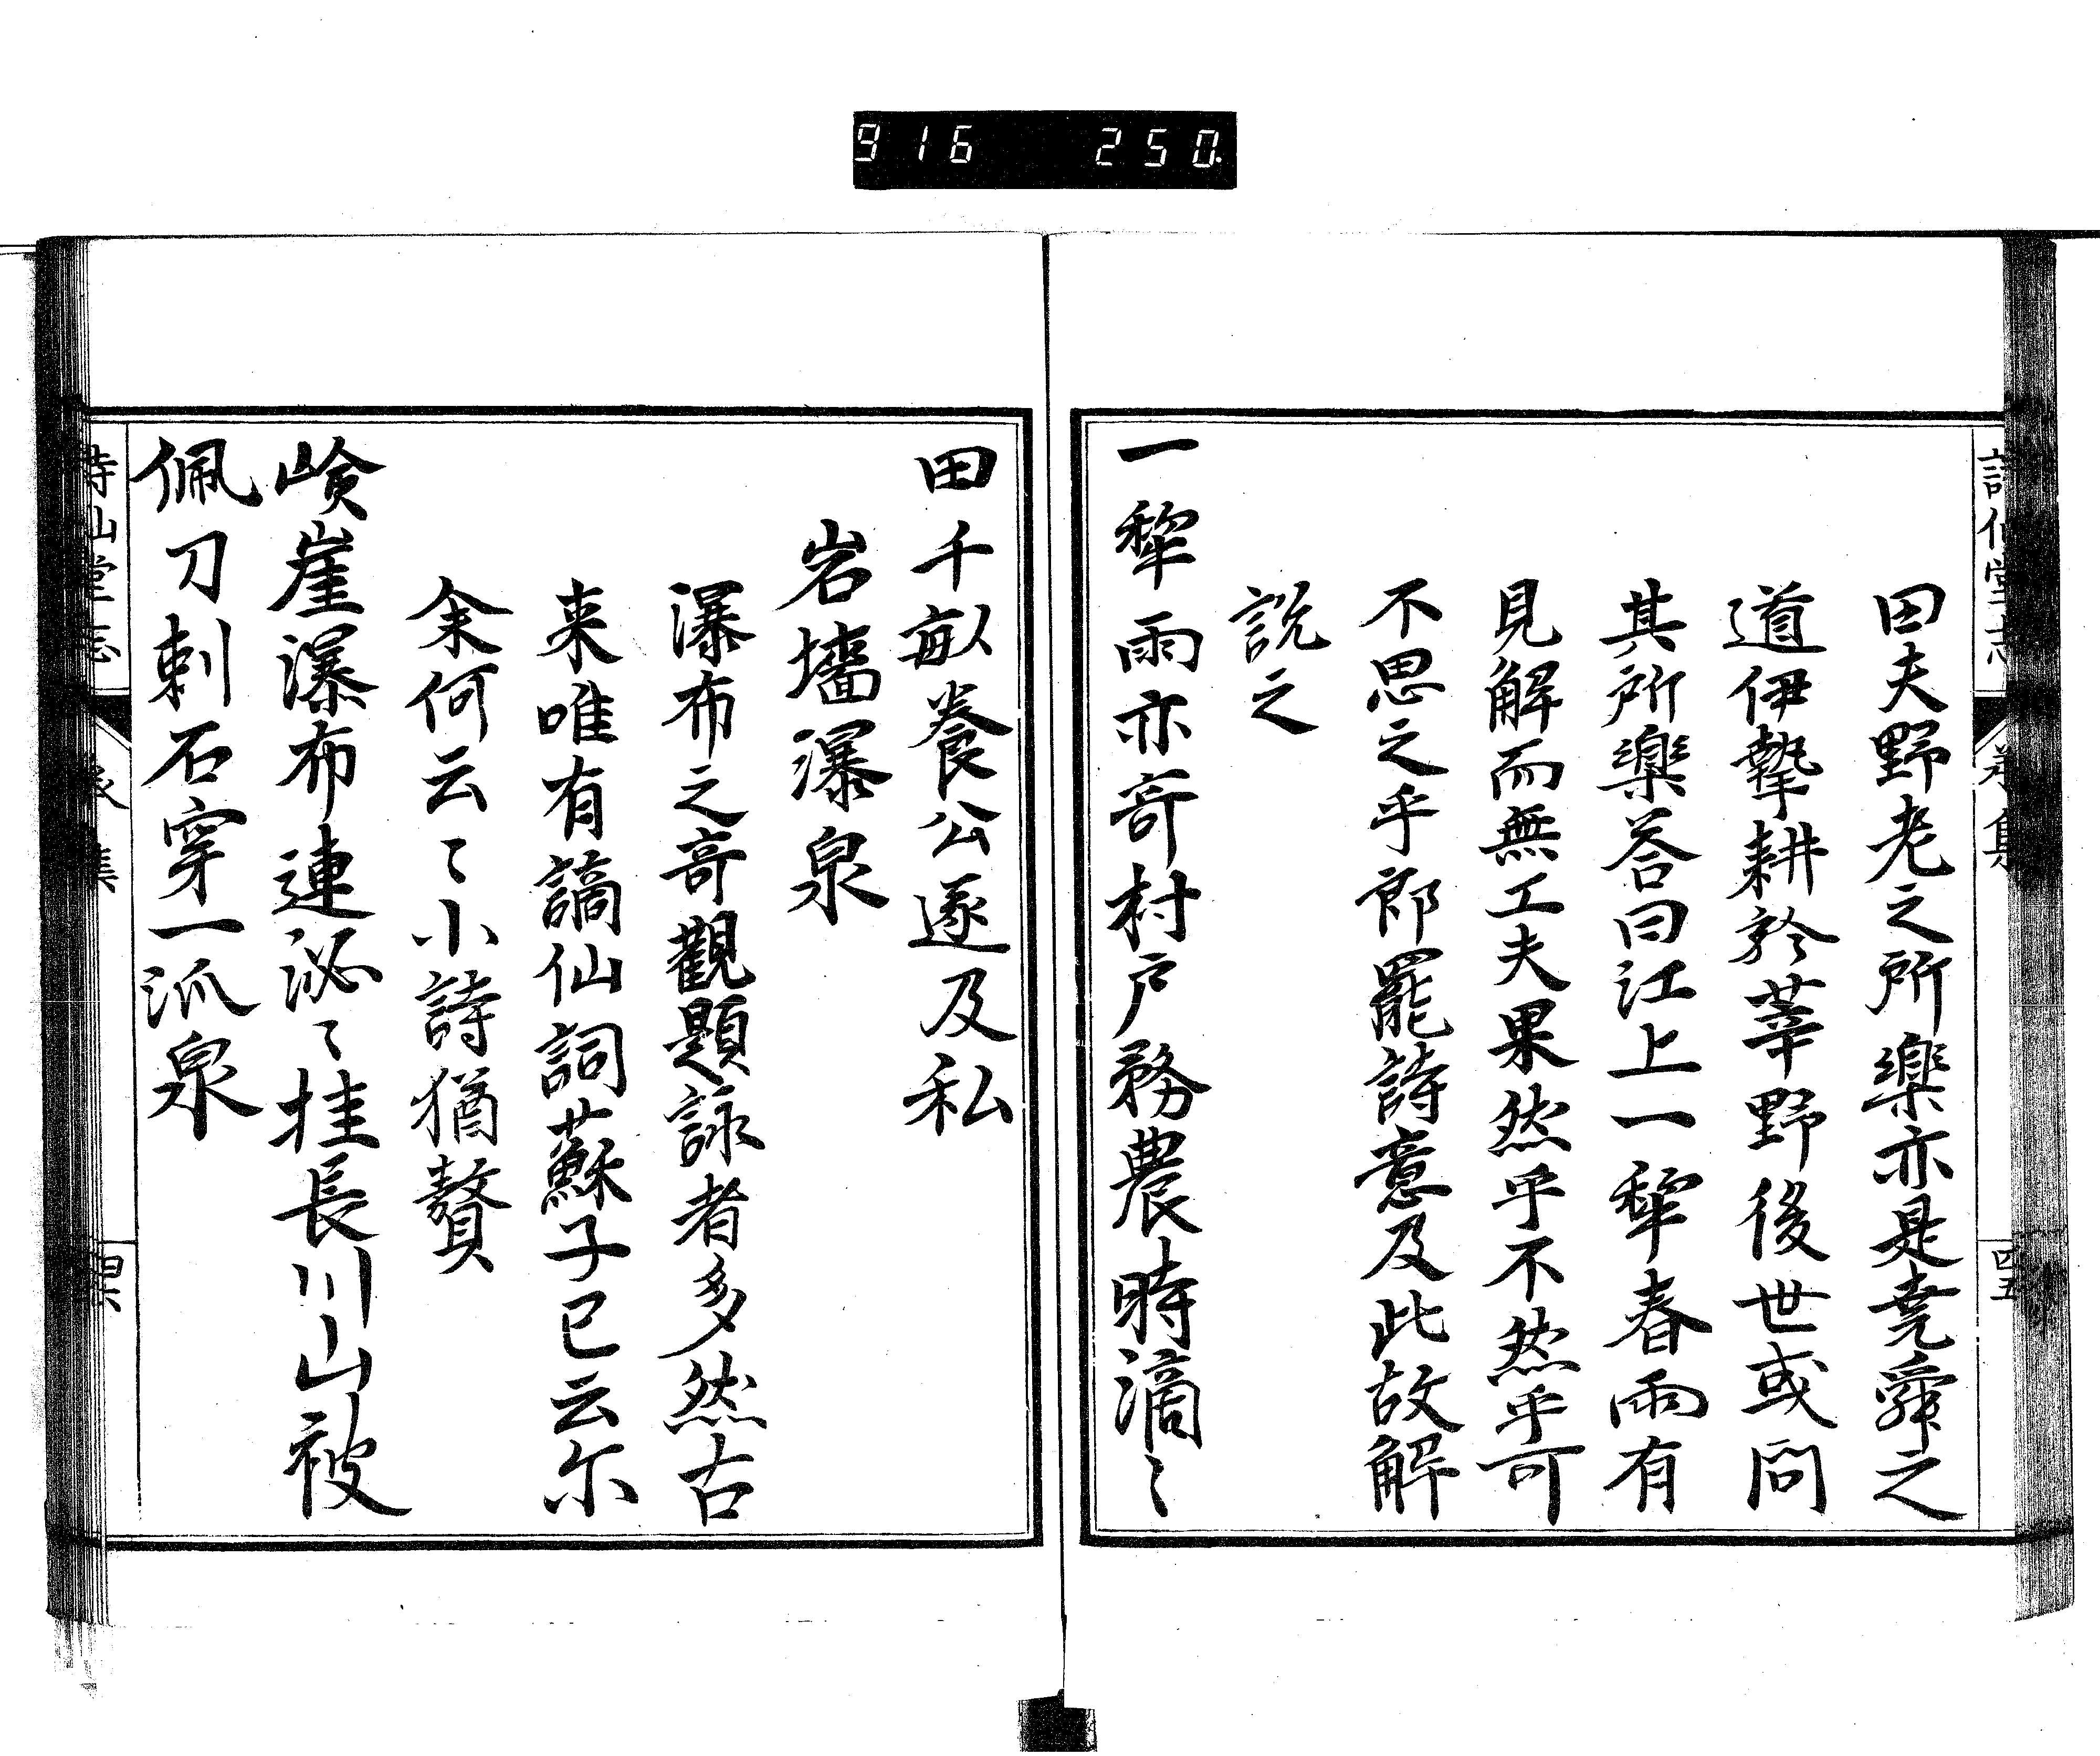 916 250.
詩仙堂志
四五
田夫野老之所楽亦是堯舜之
道伊摯耕於莘野後世或問
其所楽答曰江上一犂春雨有
見解而無工夫果然乎不然乎可
不思之乎郎罷詩意及此故解
説之
一犂雨亦奇村戸務農時滴〻
田千畝養公遂及私
岩墻瀑泉
瀑布之奇觀題詠者多然古
来唯有謫仙詞蘇子已云尓
余何云〻小詩猶贅
嶮崖瀑布連泌〻挂長川山被
佩刀刺石穿一派泉
詩仙堂志